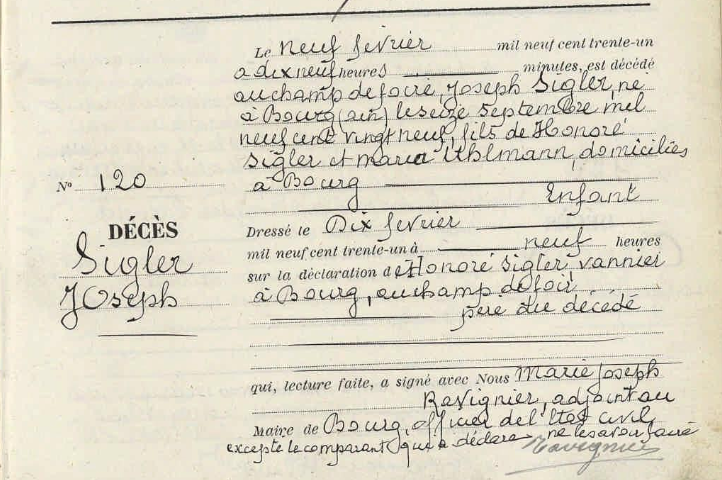 Le neuf fevrier mil neuf cent trente-un
a dix neuf heures minutes, est décédé
au champ de foire, Joseph Sigler, né
à Bourg (ain) le seize septembre mil
neuf cent vingt neuf, fils de Honoré
Sigler et maria Uhlmann, domiciliés
à Bourg Enfant
No 120
DÉCÈS
Sigler
Joseph
Dressé le Dix fevrier
mil neuf cent trente-un à neuf heures
sur la déclaration de Honoré Sigler vannier
à Bourg, au champ de foir
père du décédé
qui, lecture faite, a signé avec Nous Marie Joseph
Ravignier, adjoint au
Maire de Bourg, officier de l'Etat civil
excepté le comparant qui a déclaré ne le savoir faire
Ravignier